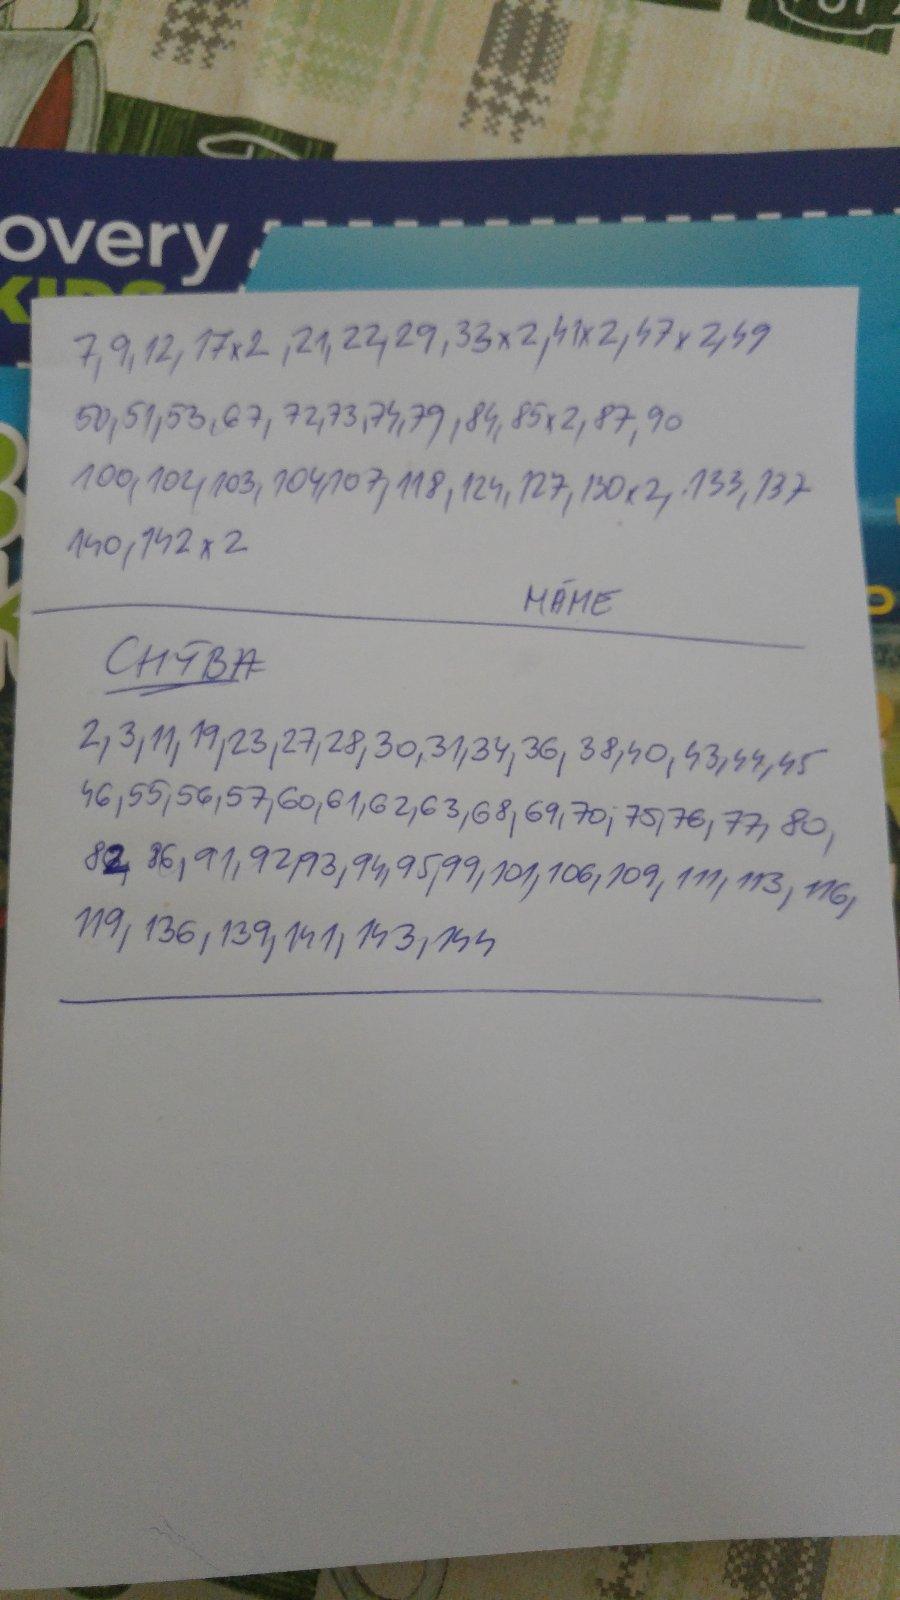 overy
KIDS
7, 9, 12, 17x2, 21, 22, 29, 33x2, 41x2, 47x2, 49
50, 51, 53, 67, 72, 73, 74, 79, 84, 85x2, 87, 90
100, 102, 103, 104, 107, 118, 124, 127, 130x2, 133, 137
140, 142x2
MÁME
CHÝBA
2, 3, 11, 19, 23, 27, 28, 30, 31, 34, 36, 38, 40, 43, 44, 45
46, 55, 56, 57, 60, 61, 62, 63, 68, 69, 70, 75, 76, 77, 80,
82, 86, 91, 92, 93, 94, 95, 99, 101, 106, 109, 111, 113, 116,
119, 136, 139, 141, 143, 144